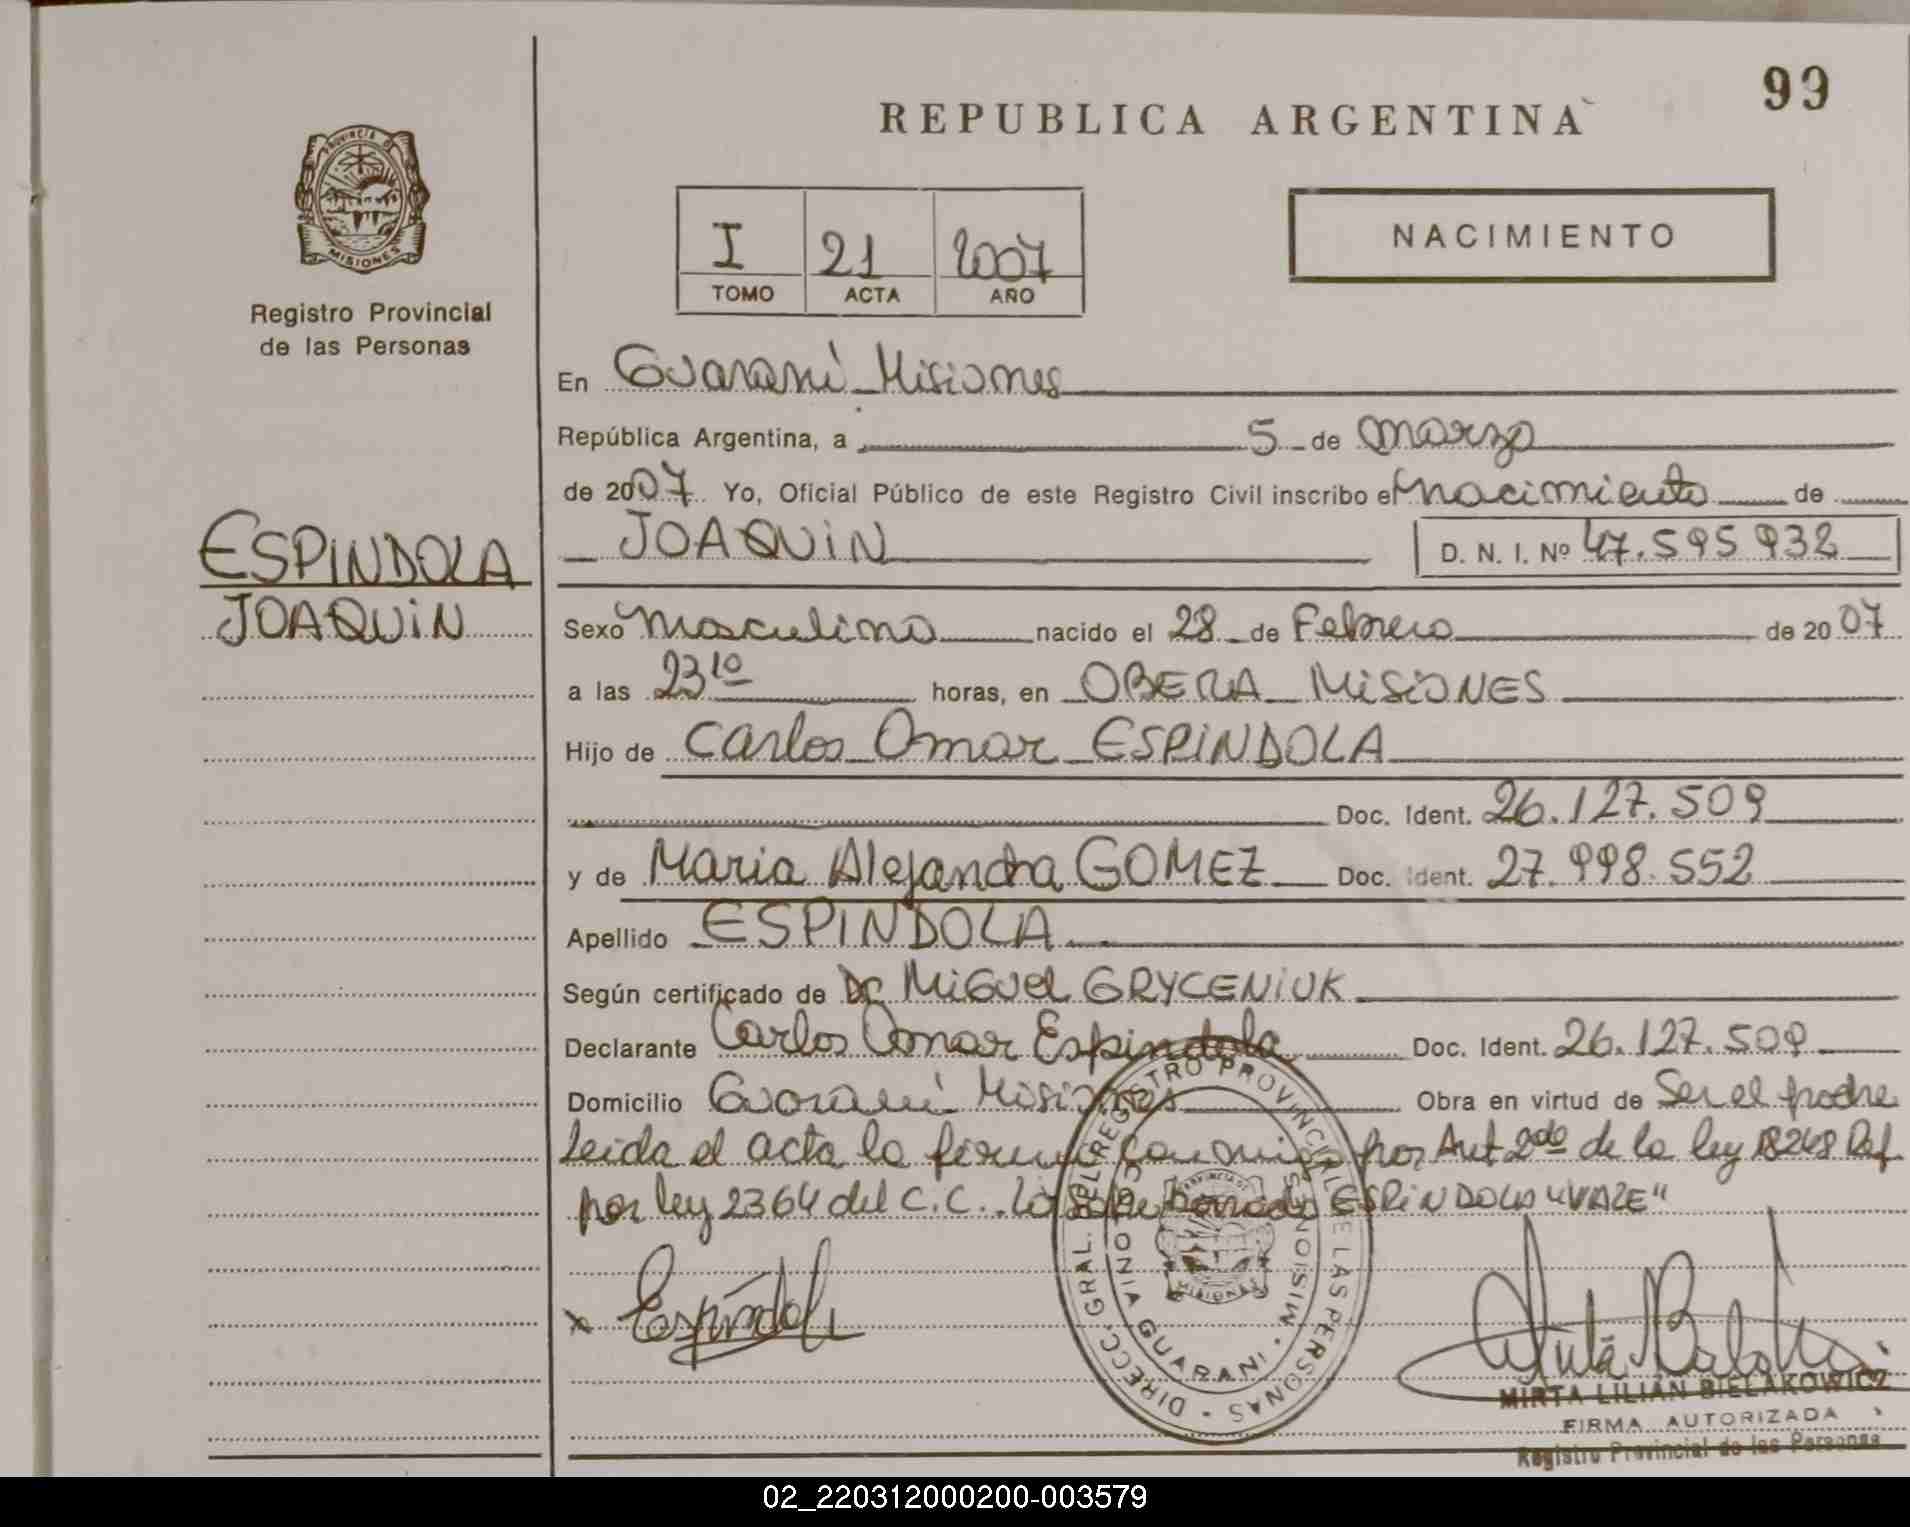 99
REPUBLICA ARGENTINA
PROVINCIA DE MISIONES
Registro Provincial
de las Personas
I 21 2007
TOMO ACTA AÑO
NACIMIENTO
ESPINDOLA
JOAQUIN
En Guaraní Misiones
República Argentina, a 5 de marzo
de 2007 Yo, Oficial Público de este Registro Civil inscribo el nacimiento de
JOAQUIN D. N. I. Nº 47.595.932
Sexo Masculino nacido el 28 de Febrero de 2007
a las 23¹⁰ horas, en OBERA MISIONES
Hijo de Carlos Omar ESPINDOLA
Doc. Ident. 26.127.509
y de Maria Alejandra GOMEZ Doc. Ident. 27.998.552
Apellido ESPINDOLA
Según certificado de Dr MIGUEL GRYCENIUK
Declarante Carlos Omar Espindola Doc. Ident. 26.127.509
Domicilio Guaraní Misiones Obra en virtud de Ser el padre
Leida el acta la firma conmigo por Art 2do de la ley 18248 Ref
por ley 2364 del C.C. Lo sobreborrado ESPINDOLA "VALE"
Espíndola
DIRECC. GRAL. DEL REGISTRO PROVINCIAL DE LAS PERSONAS
COLONIA GUARANI - MISIONES
MIRTA LILIAN BIELAKOWICZ
FIRMA AUTORIZADA
Registro Provincial de las Personas
02_220312000200-003579